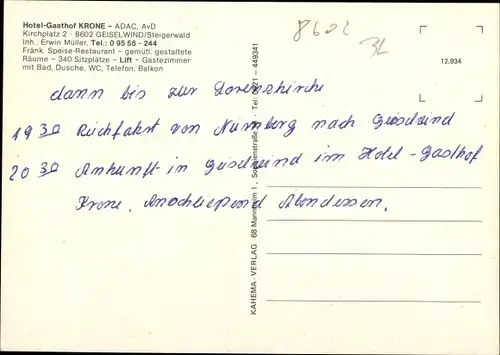 Hotel-Gasthof KRONE – ADAC, AvD
Kirchplatz 2 · 8602 GEISELWIND/Steigerwald
Inh. Erwin Müller, Tel.: 0 95 56 - 244
Fränk. Speise-Restaurant – gemütl. gestaltete
Räume – 340 Sitzplätze – Lift – Gästezimmer
mit Bad, Dusche, WC, Telefon, Balkon
8602
12.934
dann bis zur Lorenzkirche
19 30 Rückfahrt von Nürnberg nach Geiselwind
20 30 Ankunft in Geiselwind im Hotel-Gasthof
Krone. Anschliepend Abendessen.
KAHEMA-VERLAG 68 Mannheim 1, Tel.: 0621 – 449341